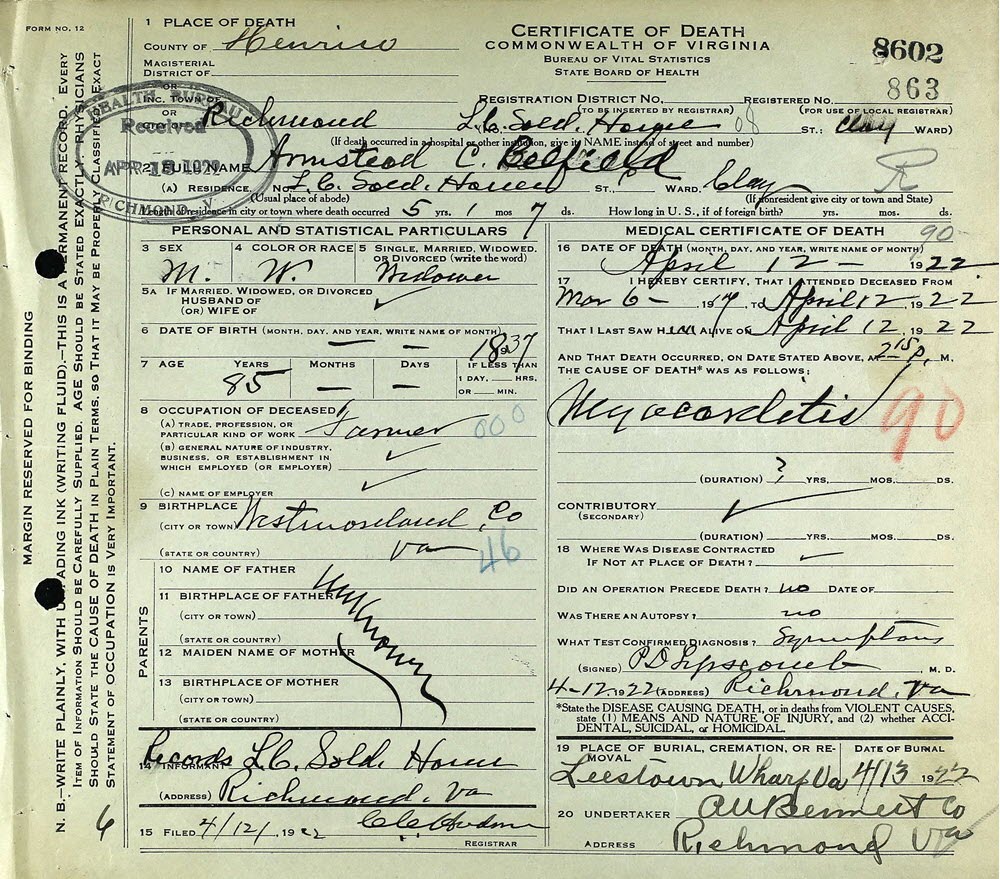 FORM NO. 12
1 PLACE OF DEATH
COUNTY OF Henrico
MAGISTERIAL
DISTRICT OF
OR
INC. TOWN OF
OR
Richmond
CERTIFICATE OF DEATH
COMMONWEALTH OF VIRGINIA
BUREAU OF VITAL STATISTICS
STATE BOARD OF HEALTH
8602
863
REGISTRATION DISTRICT NO.
(TO BE INSERTED BY REGISTRAR)
REGISTERED NO.
(FOR USE OF LOCAL REGISTRAR)
L.C. Sold. Home
ST.; Clay WARD)
(If death occurred in a hospital or other institution, give its NAME instead of street and number)
HEALTH BUREAU
Received
APR 15 1922
RICHMOND, V
2 FULL NAME Armstead C. Belfield
R
(A) RESIDENCE. No. L.C. Sold. Home ST., WARD. Clay
(Usual place of abode)
(If nonresident give city or town and State)
Length of residence in city or town where death occurred 5 yrs. 1 mos 7 ds. How long in U. S., if of foreign birth? yrs. mos. ds.
PERSONAL AND STATISTICAL PARTICULARS
3 SEX
M.
4 COLOR OR RACE
W.
5 SINGLE, MARRIED, WIDOWED, OR DIVORCED (write the word)
Widower
5A IF MARRIED, WIDOWED, OR DIVORCED
HUSBAND OF
(OR) WIFE OF
6 DATE OF BIRTH (MONTH, DAY, AND YEAR, WRITE NAME OF MONTH)
— — 1837
7 AGE YEARS MONTHS DAYS IF LESS THAN
1 DAY, HRS.
OR MIN.
85
8 OCCUPATION OF DECEASED
(A) TRADE, PROFESSION, OR
PARTICULAR KIND OF WORK Farmer
000
(B) GENERAL NATURE OF INDUSTRY,
BUSINESS, OR ESTABLISHMENT IN
WHICH EMPLOYED (OR EMPLOYER)
(C) NAME OF EMPLOYER
9 BIRTHPLACE
(CITY OR TOWN) Westmoreland Co
(STATE OR COUNTRY) Va
46
PARENTS
10 NAME OF FATHER
11 BIRTHPLACE OF FATHER
(CITY OR TOWN)
(STATE OR COUNTRY)
Unknown
12 MAIDEN NAME OF MOTHER
13 BIRTHPLACE OF MOTHER
(CITY OR TOWN)
(STATE OR COUNTRY)
14 INFORMANT Records L.C. Sold. Home
(ADDRESS) Richmond, Va
15 FILED 4/12/ 1922
REGISTRAR
6
MEDICAL CERTIFICATE OF DEATH
90
16 DATE OF DEATH (MONTH, DAY, AND YEAR, WRITE NAME OF MONTH)
April 12 — 1922
17 I HEREBY CERTIFY, THAT I ATTENDED DECEASED FROM
Mar 6 — 1917, TO April 12, 1922
THAT I LAST SAW Him ALIVE ON April 12, 1922
AND THAT DEATH OCCURRED, ON DATE STATED ABOVE, AT 2 15 P. M.
THE CAUSE OF DEATH* WAS AS FOLLOWS:
Myocarditis
90
(DURATION) ? YRS. MOS. DS.
CONTRIBUTORY
(SECONDARY)
(DURATION) YRS. MOS. DS.
18 WHERE WAS DISEASE CONTRACTED
IF NOT AT PLACE OF DEATH?
DID AN OPERATION PRECEDE DEATH? no DATE OF
WAS THERE AN AUTOPSY? no
WHAT TEST CONFIRMED DIAGNOSIS? Symptoms
(SIGNED) P D Lipscomb M. D.
4-12, 1922 (ADDRESS) Richmond, Va
*State the DISEASE CAUSING DEATH, or in deaths from VIOLENT CAUSES,
state (1) MEANS AND NATURE OF INJURY, and (2) whether ACCI-
DENTAL, SUICIDAL, or HOMICIDAL.
19 PLACE OF BURIAL, CREMATION, OR RE-
MOVAL DATE OF BURIAL
Leestown Wharf Va 4/13 1922
20 UNDERTAKER A W Bennett Co
ADDRESS Richmond Va
MARGIN RESERVED FOR BINDING
N. B.—WRITE PLAINLY, WITH UNFADING INK (WRITING FLUID).—THIS IS A PERMANENT RECORD. EVERY
ITEM OF INFORMATION SHOULD BE CAREFULLY SUPPLIED. AGE SHOULD BE STATED EXACTLY. PHYSICIANS
SHOULD STATE THE CAUSE OF DEATH IN PLAIN TERMS, SO THAT IT MAY BE PROPERLY CLASSIFIED. EXACT
STATEMENT OF OCCUPATION IS VERY IMPORTANT.